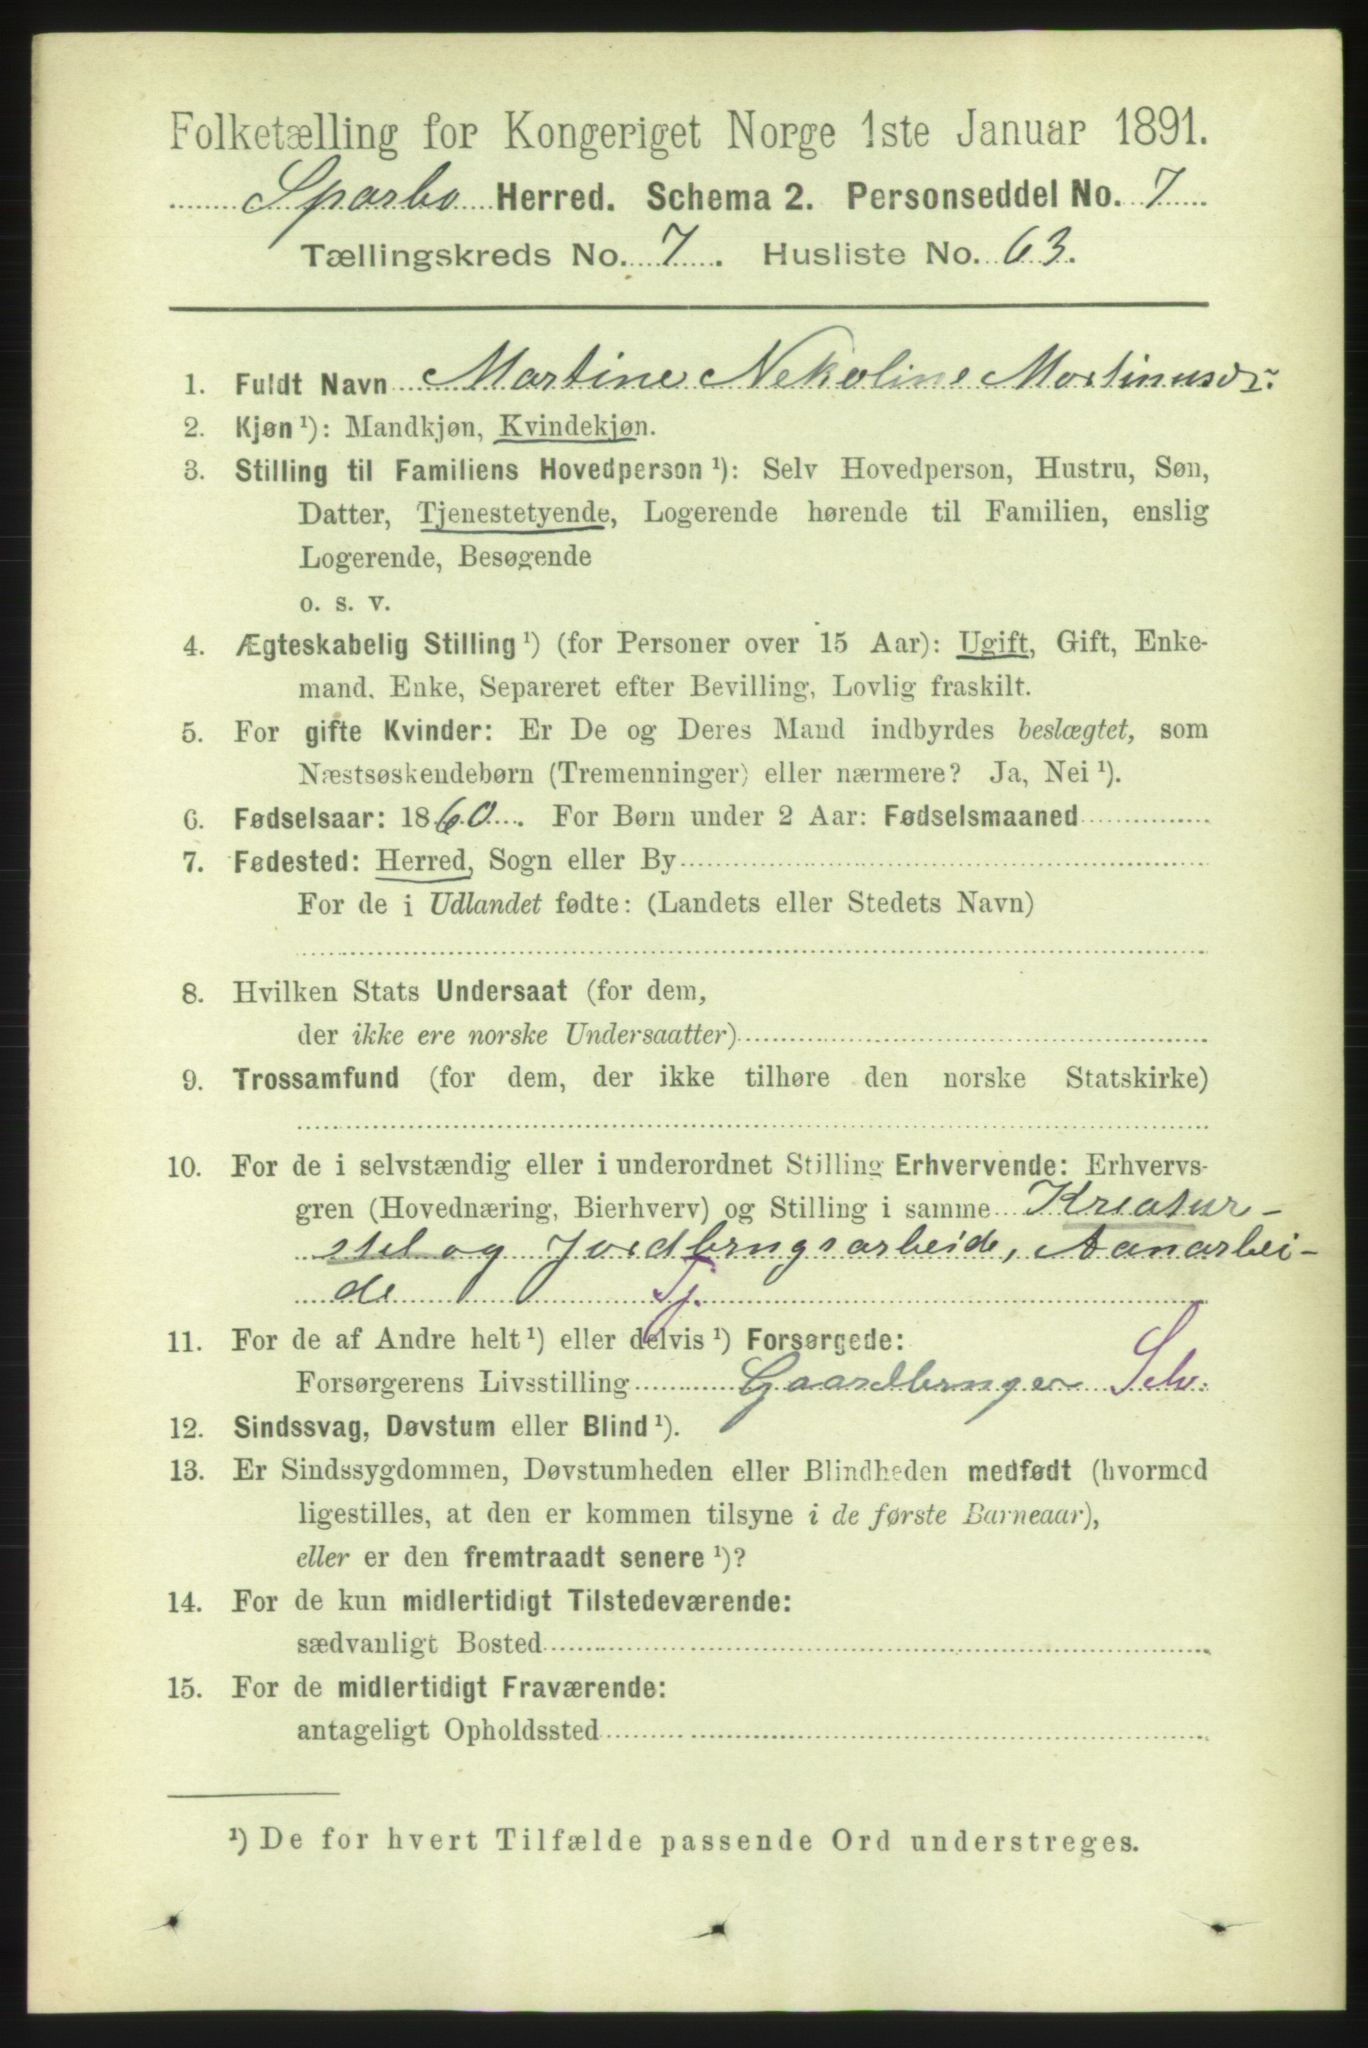 Folketælling for Kongeriget Norge 1ste Januar 1891.
Sparbo Herred. Schema 2. Personseddel No. 7
Tællingskreds No. 7. Husliste No. 63.
1. Fuldt Navn Martine Nekoline Martinusdr.
2. Kjøn ¹): Mandkjøn, Kvindekjøn.
3. Stilling til Familiens Hovedperson ¹): Selv Hovedperson, Hustru, Søn,
Datter, Tjenestetyende, Logerende hørende til Familien, enslig
Logerende, Besøgende
o. s. v.
4. Ægteskabelig Stilling ¹) (for Personer over 15 Aar): Ugift, Gift, Enke-
mand, Enke, Separeret efter Bevilling, Lovlig fraskilt.
5. For gifte Kvinder: Er De og Deres Mand indbyrdes beslægtet, som
Næstsøskendebørn (Tremenninger) eller nærmere? Ja, Nei ¹).
6. Fødselsaar: 1860. For Børn under 2 Aar: Fødselsmaaned
7. Fødested: Herred, Sogn eller By
For de i Udlandet fødte: (Landets eller Stedets Navn)
8. Hvilken Stats Undersaat (for dem,
der ikke ere norske Undersaatter)
9. Trossamfund (for dem, der ikke tilhøre den norske Statskirke)
10. For de i selvstændig eller i underordnet Stilling Erhvervende: Erhvervs-
gren (Hovednæring, Bierhverv) og Stilling i samme Kreatur-
stel og Jordbrugsarbeide, Aanarbei-
de Tj.
11. For de af Andre helt ¹) eller delvis ¹) Forsørgede:
Forsørgerens Livsstilling Gaardbruger Selv.
12. Sindssvag, Døvstum eller Blind ¹).
13. Er Sindssygdommen, Døvstumheden eller Blindheden medfødt (hvormed
ligestilles, at den er kommen tilsyne i de første Barneaar),
eller er den fremtraadt senere ¹)?
14. For de kun midlertidigt Tilstedeværende:
sædvanligt Bosted
15. For de midlertidigt Fraværende:
antageligt Opholdssted
¹) De for hvert Tilfælde passende Ord understreges.